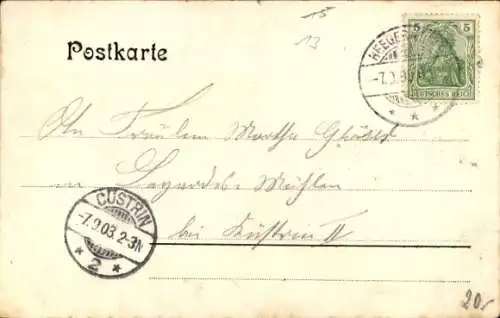 15
13
Postkarte
5 5
DEUTSCHES REICH
HEEGE
-7.9.0
An Fräulein Martha Gläser
in Lagardes-Mühlen
bei Küstrin II
CÜSTRIN
-7.9.03.2-3N
* 2 *
20,-